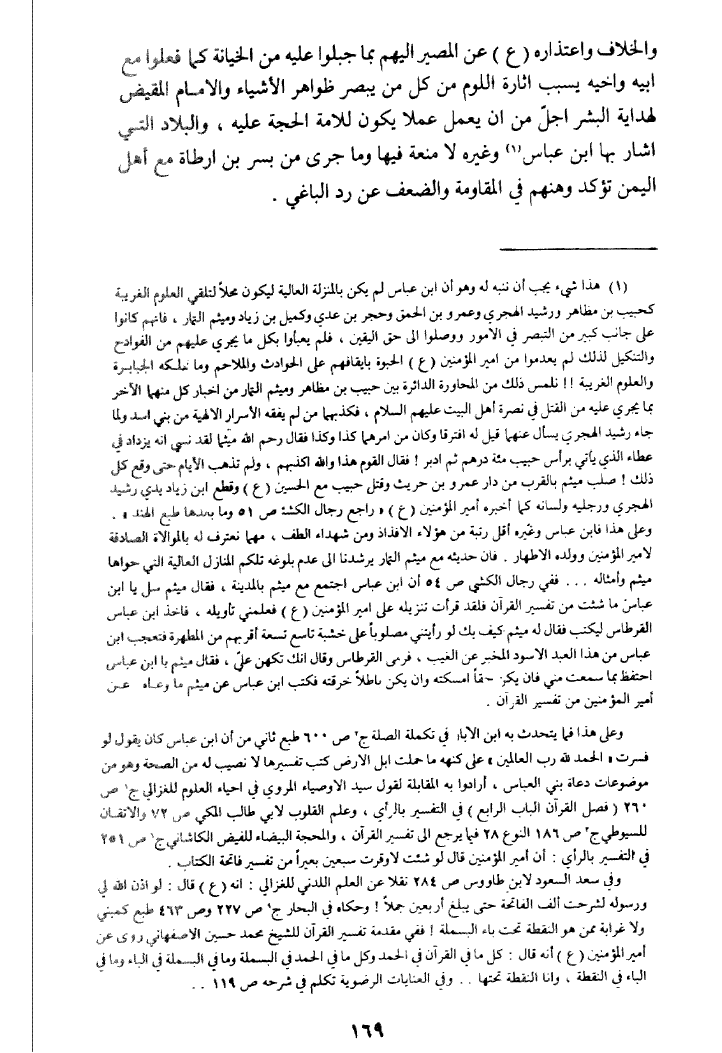 والخلاف واعتذاره ( ع ) عن المصير اليهم بما جبلوا عليه من الخيانة كما فعلوا مع
ابيه واخيه يسبب اثارة اللوم من كل من يبصر ظواهر الأشياء والامام المقيض
لهداية البشر اجلّ من ان يعمل عملا يكون للامة الحجة عليه ، والبلاد التي
اشار بها ابن عباس (١) وغيره لا منعة فيها وما جرى من بسر بن ارطاة مع أهل
اليمن تؤكد وهنهم في المقاومة والضعف عن رد الباغي .
(١) هذا شيء يجب أن ننبه له وهو أن ابن عباس لم يكن بالمنزلة العالية ليكون محلاً لتلقي العلوم الغريبة
كحبيب بن مظاهر ورشيد الهجري وعمرو بن الحمق وحجر بن عدي وكميل بن زياد وميثم التمار ، فانهم كانوا
على جانب كبير من التبصر في الامور ووصلوا الى حق اليقين ، فلم يعبأوا بكل ما يجري عليهم من الفوادح
والتنكيل لذلك لم يعدموا من امير المؤمنين ( ع ) الحبوة بايقافهم على الحوادث والملاحم وما تملكه الجبابرة
والعلوم الغريبة !! نلمس ذلك من المحاورة الدائرة بين حبيب بن مظاهر وميثم التمار من اخبار كل منهما الآخر
بما يجري عليه من القتل في نصرة أهل البيت عليهم السلام ، فكذبهما من لم يفقه الأسرار الالهية من بني اسد ولما
جاء رشيد الهجري يسأل عنهما قيل له افترقا وكان من امرهما كذا وكذا فقال رحم الله ميثما لقد نسي انه يزداد في
عطاء الذي يأتي برأس حبيب مئة درهم ثم ادبر ! فقال القوم هذا والله اكذبهم ، ولم تذهب الأيام حتى وقع كل
ذلك ! صلب ميثم بالقرب من دار عمرو بن حريث وقتل حبيب مع الحسين ( ع ) وقطع ابن زياد يدي رشيد
الهجري ورجليه ولسانه كما أخبره أمير المؤمنين ( ع ) « راجع رجال الكشي ص ٥١ وما بعدها طبع الهند » .
وعلى هذا فابن عباس وغيره أقل رتبة من هؤلاء الافذاذ ومن شهداء الطف ، مهما نعترف له بالموالاة الصادقة
لامير المؤمنين وولده الاطهار . فان حديثه مع ميثم التمار يرشدنا الى عدم بلوغه تلكم المنازل العالية التي حواها
ميثم وأمثاله ... ففي رجال الكشي ص ٥٤ أن ابن عباس اجتمع مع ميثم بالمدينة ، فقال ميثم سل يا ابن
عباس ما شئت من تفسير القرآن فلقد قرأت تنزيله على امير المؤمنين ( ع ) فعلمني تأويله ، فاخذ ابن عباس
القرطاس ليكتب فقال له ميثم كيف بك لو رأيتني مصلوباً على خشبة تاسع تسعة أقربهم من المطهرة فتعجب ابن
عباس من هذا العبد الاسود المخبر عن الغيب ، فرمى القرطاس وقال انك تكهن عليّ ، فقال ميثم يا ابن عباس
احتفظ بما سمعت مني فان يكن حقاً امسكته وان يكن باطلاً خرقته فكتب ابن عباس عن ميثم ما وعاه عن
أمير المؤمنين من تفسير القرآن .
وعلى هذا فما يتحدث به ابن الابار في تكملة الصلة ج٢ ص ٦٠٠ طبع ثاني من أن ابن عباس كان يقول لو
فسرت « الحمد لله رب العالمين » على كنهه ما حملت ابل الارض كتب تفسيرها لا نصيب له من الصحة وهو من
موضوعات دعاة بني العباس ، أرادوا به المقابلة لقول سيد الاوصياء المروي في احياء العلوم للغزالي ج١ ص
٢٦٠ ( فصل القرآن الباب الرابع ) في التفسير بالرأي ، وعلم القلوب لابي طالب المكي ص ٧٢ والاتقان
للسيوطي ج٢ ص ١٨٦ النوع ٢٨ فيما يرجع الى تفسير القرآن ، والمحجة البيضاء للفيض الكاشاني ج١ ص ٢٥١
في التفسير بالرأي : أن أمير المؤمنين قال لو شئت لاوقرت سبعين بعيراً من تفسير فاتحة الكتاب .
وفي سعد السعود لابن طاووس ص ٢٨٤ نقلا عن العلم اللدني للغزالي : انه ( ع ) قال : لو اذن الله لي
ورسوله لشرحت ألف الفاتحة حتى يبلغ أربعين جملاً ! وحكاه في البحار ج٩ ص ٢٢٧ وص ٤٦٣ طبع كمبني
ولا غرابة ممن هو النقطة تحت باء البسملة ! ففي مقدمة تفسير القرآن للشيخ محمد حسين الاصفهاني روى عن
أمير المؤمنين ( ع ) أنه قال : كل ما في القرآن في الحمد وكل ما في الحمد في البسملة وما في البسملة في الباء وما في
الباء في النقطة ، وانا النقطة تحتها .. وفي العنايات الرضوية تكلم في شرحه ص ١١٩ ..
١٦٩